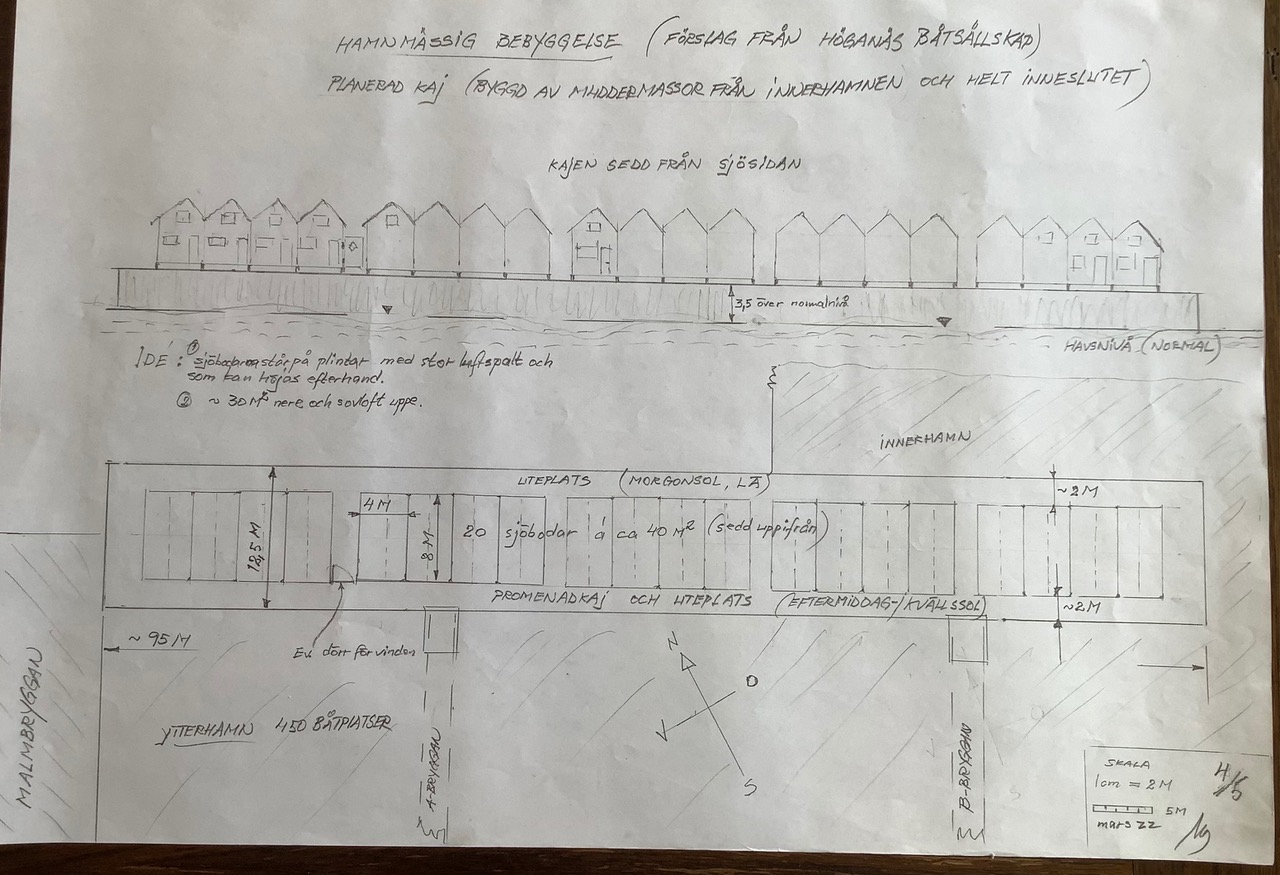 HAMNMÄSSIG BEBYGGELSE (FÖRSLAG FRÅN HÖGANÄS BÅTSÄLLSKAP)
PLANERAD KAJ (BYGGD AV MUDDERMASSOR FRÅN INNERHAMNEN OCH HELT INNESLUTET)
KAJEN SEDD FRÅN SJÖSIDAN
3,5 över normalnivå
HAVSNIVÅ (NORMAL)
IDÉ: ① sjöbodarna står på plintar med stor luftspalt och
som kan höjas efterhand.
② ~ 30 M² nere och sovloft uppe.
INNERHAMN
UTEPLATS (MORGONSOL, LÄ)
~2M
4M
12,5 M
8 M
20 sjöbodar á ca 40 M² (sedd uppifrån)
PROMENADKAJ OCH UTEPLATS (EFTERMIDDAG-/KVÄLLSSOL)
~2M
~ 95 M
Ev. dörr för vinden
N
O
V
S
YTTERHAMN 450 BÅTPLATSER
MALMBRYGGAN
A-BRYGGAN
B-BRYGGAN
SKALA
1cm = 2M
5M
mars 22
4/5